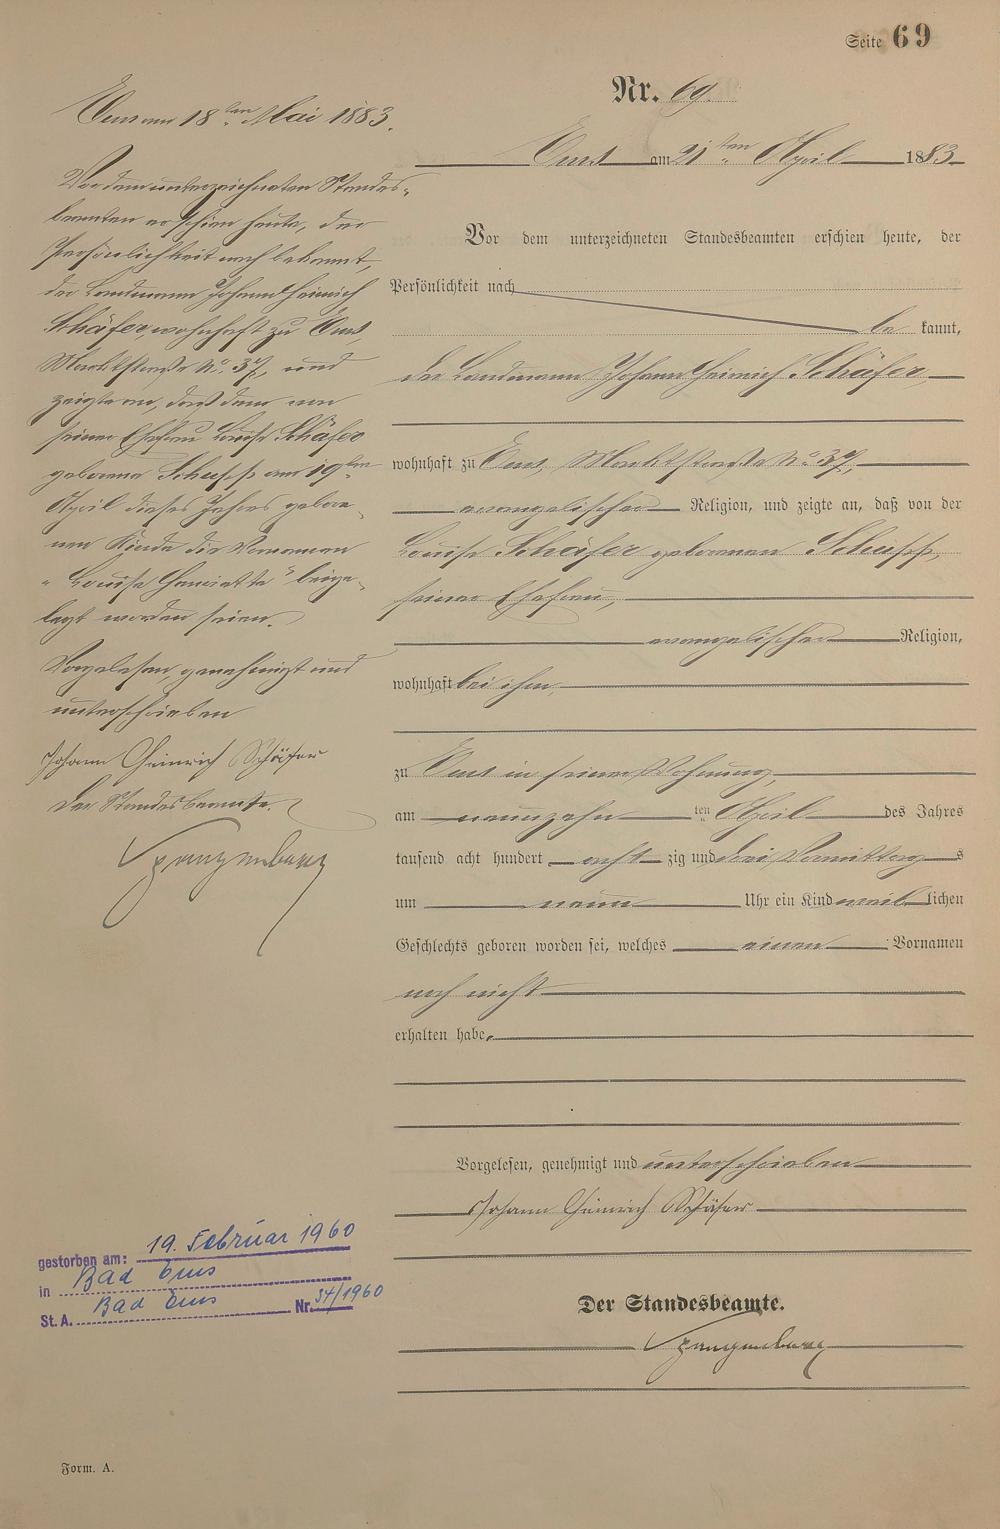 Seite 69
Nr. 69.
Ems am 21ten April 1883
Vor dem unterzeichneten Standesbeamten erschien heute, der
Persönlichkeit nach
be kannt,
der Landmann Johann Heinrich Schäfer
wohnhaft zu Ems, Marktstraße No. 37,
evangelischer Religion, und zeigte an, daß von der
Louise Schäfer geborenen Schupp,
seiner Ehefrau,
evangelischer Religion,
wohnhaft bei ihm,
zu Ems in seiner Wohnung,
am neunzehn ten April des Jahres
tausend acht hundert acht zig und drei Vormittags
um neun Uhr ein Kind weiblichen
Geschlechts geboren worden sei, welches einen Vornamen
noch nicht
erhalten habe.
Vorgelesen, genehmigt und unterschrieben
Johann Heinrich Schäfer
Der Standesbeamte.
Spangenberg
Ems am 18ten Mai 1883.
Vor dem unterzeichneten Standes-
beamten erschien heute, der
Persönlichkeit nach bekannt,
der Landmann Johann Heinrich
Schäfer, wohnhaft zu Ems,
Marktstraße No. 37, und
zeigte an, daß dem von
seiner Ehefrau Louise Schäfer
geborene Schupp am 19ten
April dieses Jahres gebore-
nen Kinde die Vornamen
"Louise Henriette" beige-
legt worden seien.
Vorgelesen, genehmigt und
unterschrieben
Johann Heinrich Schäfer
Der Standesbeamte.
Spangenberg
gestorben am: 19. Februar 1960
in Bad Ems
St. A. Bad Ems Nr. 34/1960
Form. A.